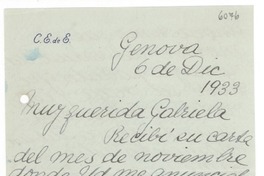 6046
C.E. de E.
Genova
6 de Dic
1933
Muy querida Gabriela
Recibí su carta
del mes de noviembre
donde Ud me anuncia